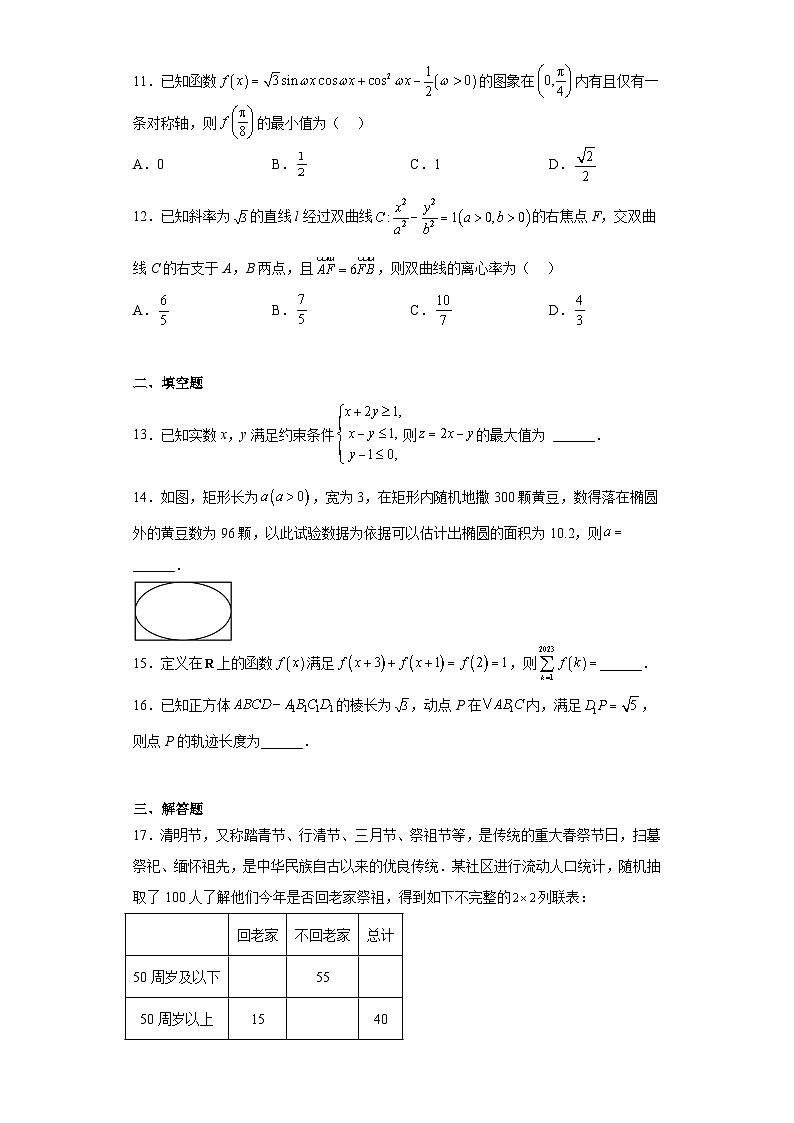 11．已知函数 f(x) = √3 sin ωx cos ωx + cos² ωx − 1/2 (ω > 0) 的图象在 (0, π/4) 内有且仅有一
条对称轴，则 f(π/8) 的最小值为（　）
A．0　B．1/2　C．1　D．√2/2
12．已知斜率为的直线 l 经过双曲线 C: x²/a² − y²/b² = 1(a > 0, b > 0) 的右焦点 F，交双曲
线 C 的右支于 A，B 两点，且 AF = 6FB，则双曲线的离心率为（　）
A．6/5　B．7/5　C．10/7　D．4/3
二、填空题
13．已知实数 x，y 满足约束条件 { x + 2y ≥ 1, x − y ≤ 1, y − 1 ≤ 0, 则 z = 2x − y 的最大值为 ______．
14．如图，矩形长为 a(a > 0)，宽为 3，在矩形内随机地撒 300 颗黄豆，数得落在椭圆
外的黄豆数为 96 颗，以此试验数据为依据可以估计出椭圆的面积为 10.2，则 a =
______．
15．定义在 R 上的函数 f(x) 满足 f(x+3) + f(x+1) = f(2) = 1，则 ∑_{k=1}^{2023} f(k) = ______．
16．已知正方体 ABCD − A₁B₁C₁D₁ 的棱长为，动点 P 在 ∨AB₁C 内，满足 D₁P = √5，
则点 P 的轨迹长度为______．
三、解答题
17．清明节，又称踏青节、行清节、三月节、祭祖节等，是传统的重大春祭节日，扫墓
祭祀、缅怀祖先，是中华民族自古以来的优良传统．某社区进行流动人口统计，随机抽
取了 100 人了解他们今年是否回老家祭祖，得到如下不完整的 2×2 列联表：
回老家　不回老家　总计
50 周岁及以下　55
50 周岁以上　15　40